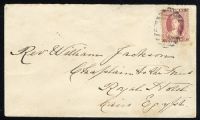 Rev William Jackson
Chaplain to the
Royal Hotel
Cairo Egypt